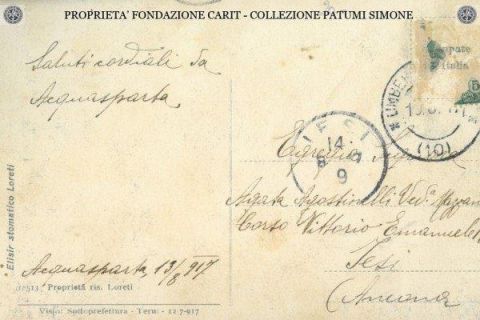 PROPRIETA' FONDAZIONE CARIT - COLLEZIONE PATUMI SIMONE
Saluti cordiali da
Acquasparta
Acquasparta, 13/8 917
"Elisir stomatico Loreti
32513 Proprietà ris. Loreti
Visto: Sottoprefettura - Terni - 12-7-917
JESI
14
8
9
(10)
Italia
Agata Agostinelli Ved.ª
Corso Vittorio Emanuele
Jesi
(Ancona)